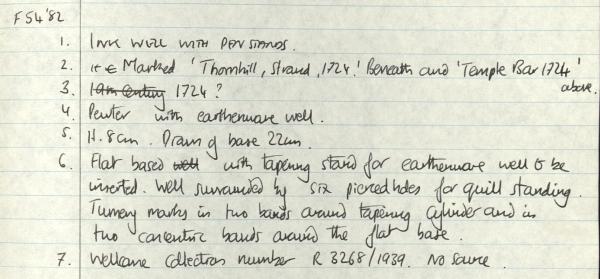 F S4 '82
1. INK WELL WITH PEN STANDS.
2. Marked 'Thornhill, Strand, 1724.' Beneath and 'Temple Bar 1724' above.
3. 19th Century 1724?
4. Pewter with earthenware well.
5. H. 8cm. Diam of base 22cm.
6. Flat based well with tapering stand for earthenware well to be
inserted. Well surrounded by six pierced holes for quill standing.
Turnery marks in two bands around tapering cylinder and in
two concentric bands around the flat base.
7. Wellcome Collection number R 3268/1939. No source.